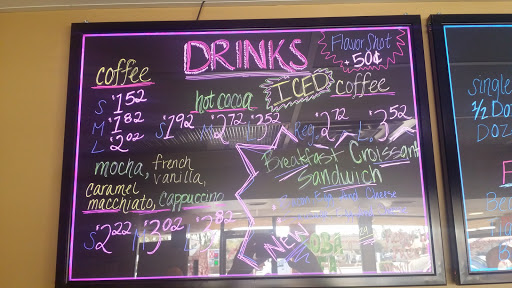 DRINKS
Flavor Shot
+ 50¢
coffee
S $1.52
M $1.82
L $2.02
hot cocoa
S $1.92 M $2.72 L $2.52
ICED coffee
Reg. $2.72 L $3.52
mocha, french vanilla,
caramel macchiato, cappuccino
S $2.22 M $3.02 L $2.82
Breakfast Croissant
Sandwich
Bacon Egg And Cheese
NEW
Single
1/2 Doz
Doz